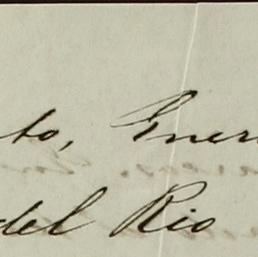 to, Gner
del Rio